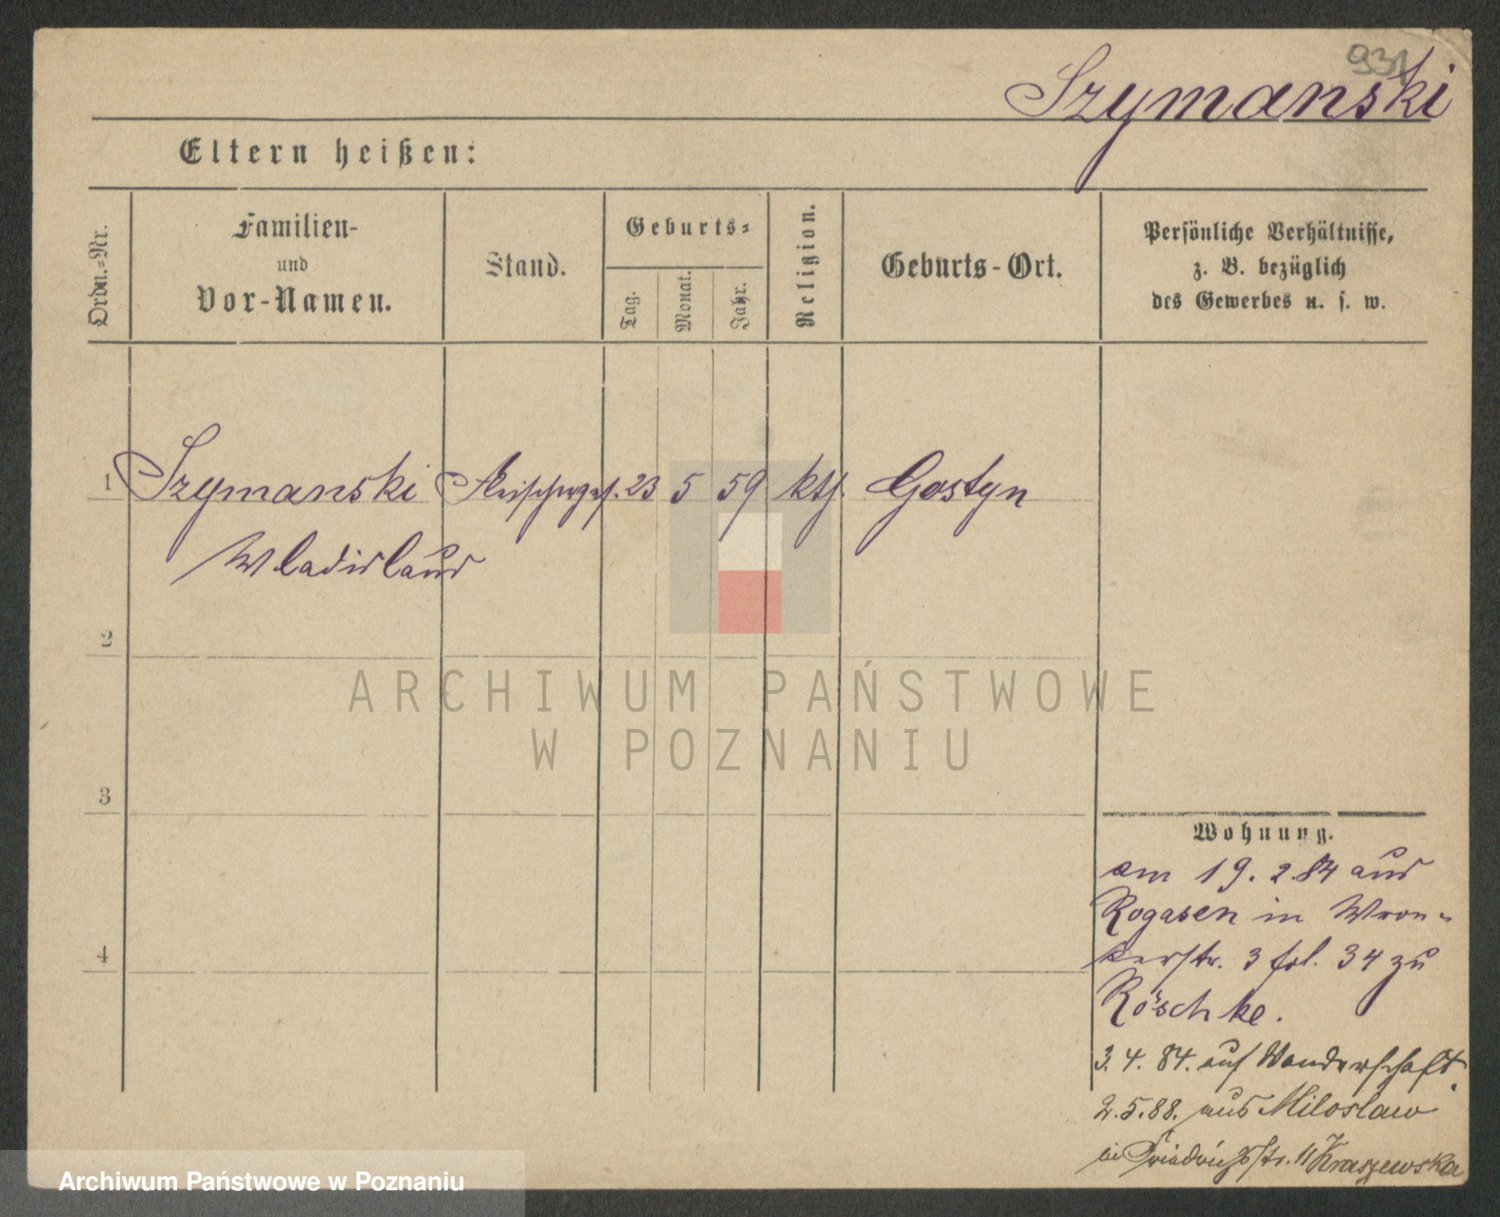 931
Szymanski
Eltern heißen:
Ordn.=Nr.
Familien-
und
Vor-Namen.
Stand.
Geburts=
Tag.
Monat.
Jahr.
Religion.
Geburts-Ort.
Persönliche Verhältnisse,
z. B. bezüglich
des Gewerbes u. s. w.
1 Szymanski Fleischerges. 23 5 59 kth. Gostyn
Wladislaus
2
ARCHIWUM PAŃSTWOWE
W POZNANIU
3
Wohnung.
am 19. 2. 84 aus
Rogasen in Wron=
kerstr. 3 fol. 34 zu
Röschke.
4
3. 4. 84. auf Wanderschaft.
2. 5. 88. aus Miloslaw
in Friedrichsstr. 11 Kraszewska
Archiwum Państwowe w Poznaniu